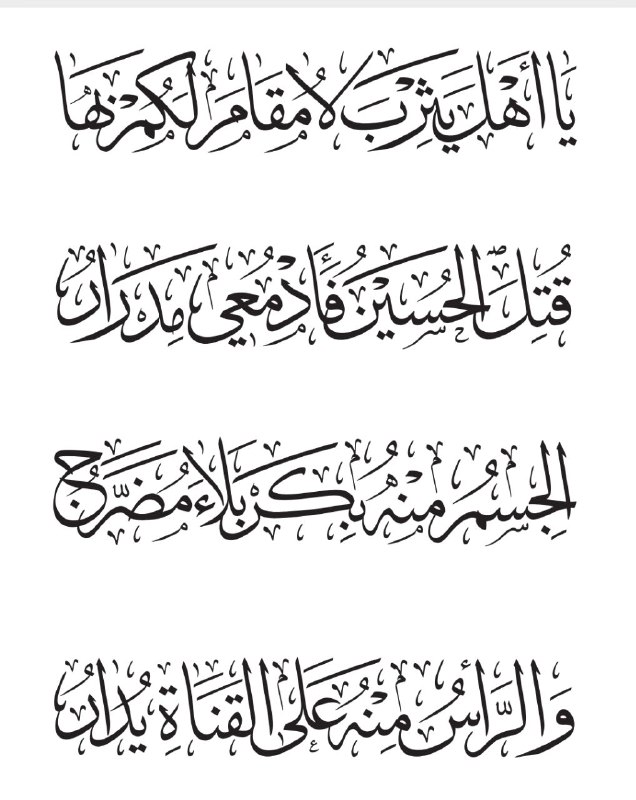 يَا أَهْلَ يَثْرِبَ لَا مُقَامَ لَكُمْ بِهَا
قُتِلَ الْحُسَيْنُ فَأَدْمُعِي مِدْرَارُ
الْجِسْمُ مِنْهُ بِكَرْبَلَاءَ مُضَرَّجٌ
وَالرَّأْسُ مِنْهُ عَلَى الْقَنَاةِ يُدَارُ